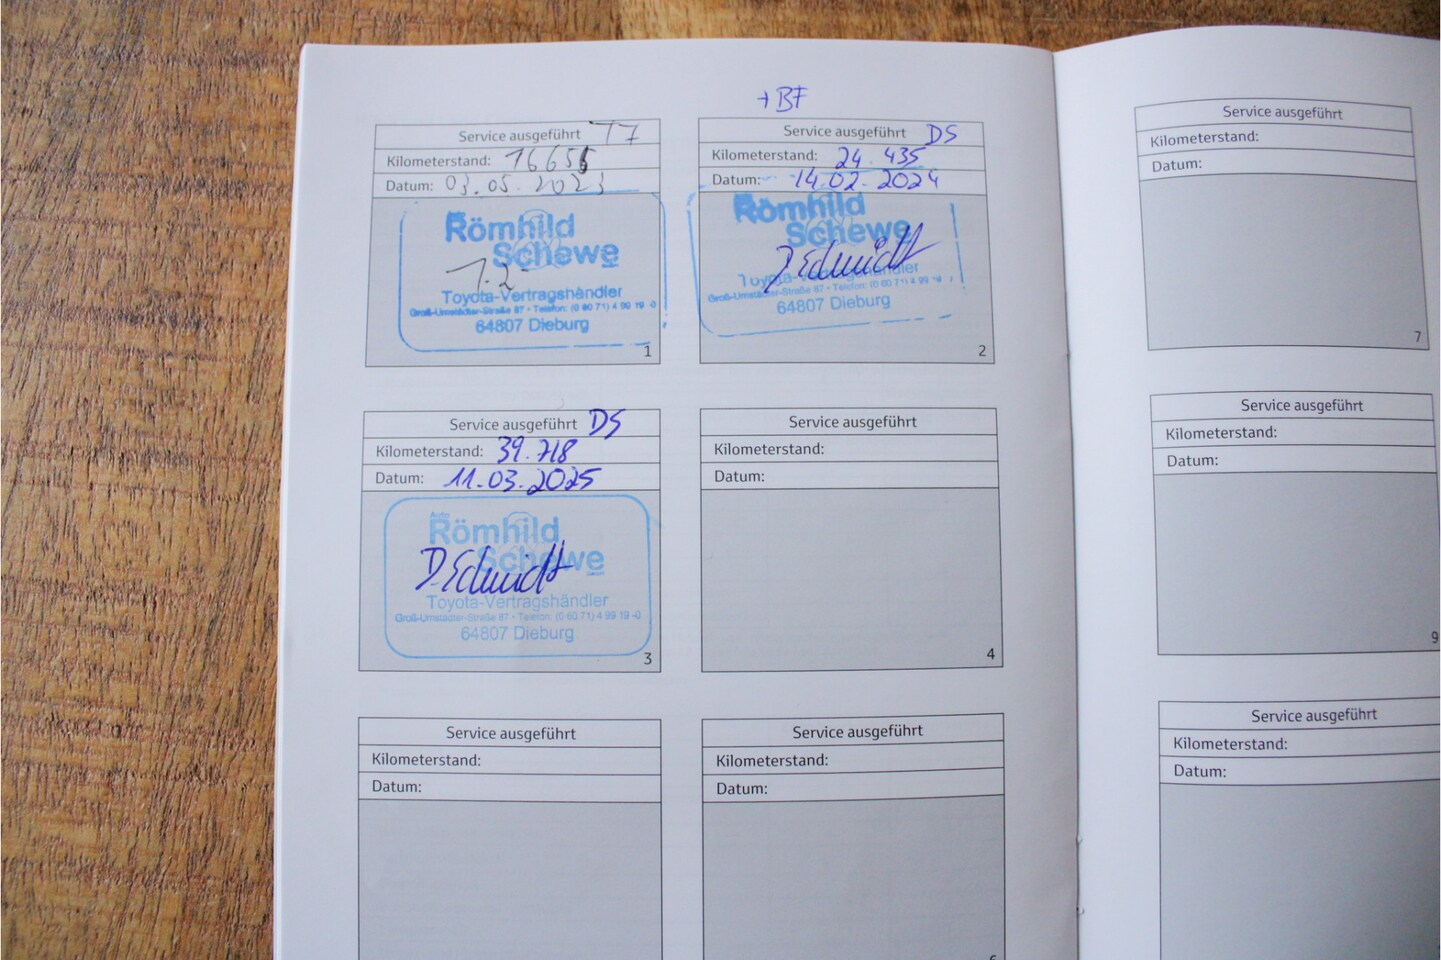 + BF
Service ausgeführt
Kilometerstand:
Datum: 03.05.2023
Römhild
Schewe
Toyota-Vertragshändler
Groß-Umstädter-Straße 87 • Telefon: (0 60 71) 4 99 19 -0
64807 Dieburg
1
Service ausgeführt DS
Kilometerstand: 24.435
Datum: 14.02.2024
Römhild
Schewe
D. Schmidt
Toyota-Vertragshändler
Groß-Umstädter-Straße 87 • Telefon: (0 60 71) 4 99 19 -0
64807 Dieburg
2
Service ausgeführt DS
Kilometerstand: 39.718
Datum: 11.03.2025
Auto
Römhild
Schewe
D. Schmidt
Toyota-Vertragshändler
Groß-Umstädter-Straße 87 • Telefon: (0 60 71) 4 99 19 -0
64807 Dieburg
3
Service ausgeführt
Kilometerstand:
Datum:
4
Service ausgeführt
Kilometerstand:
Datum:
Service ausgeführt
Kilometerstand:
Datum:
6
Service ausgeführt
Kilometerstand:
Datum:
7
Service ausgeführt
Kilometerstand:
Datum:
9
Service ausgeführt
Kilometerstand:
Datum: